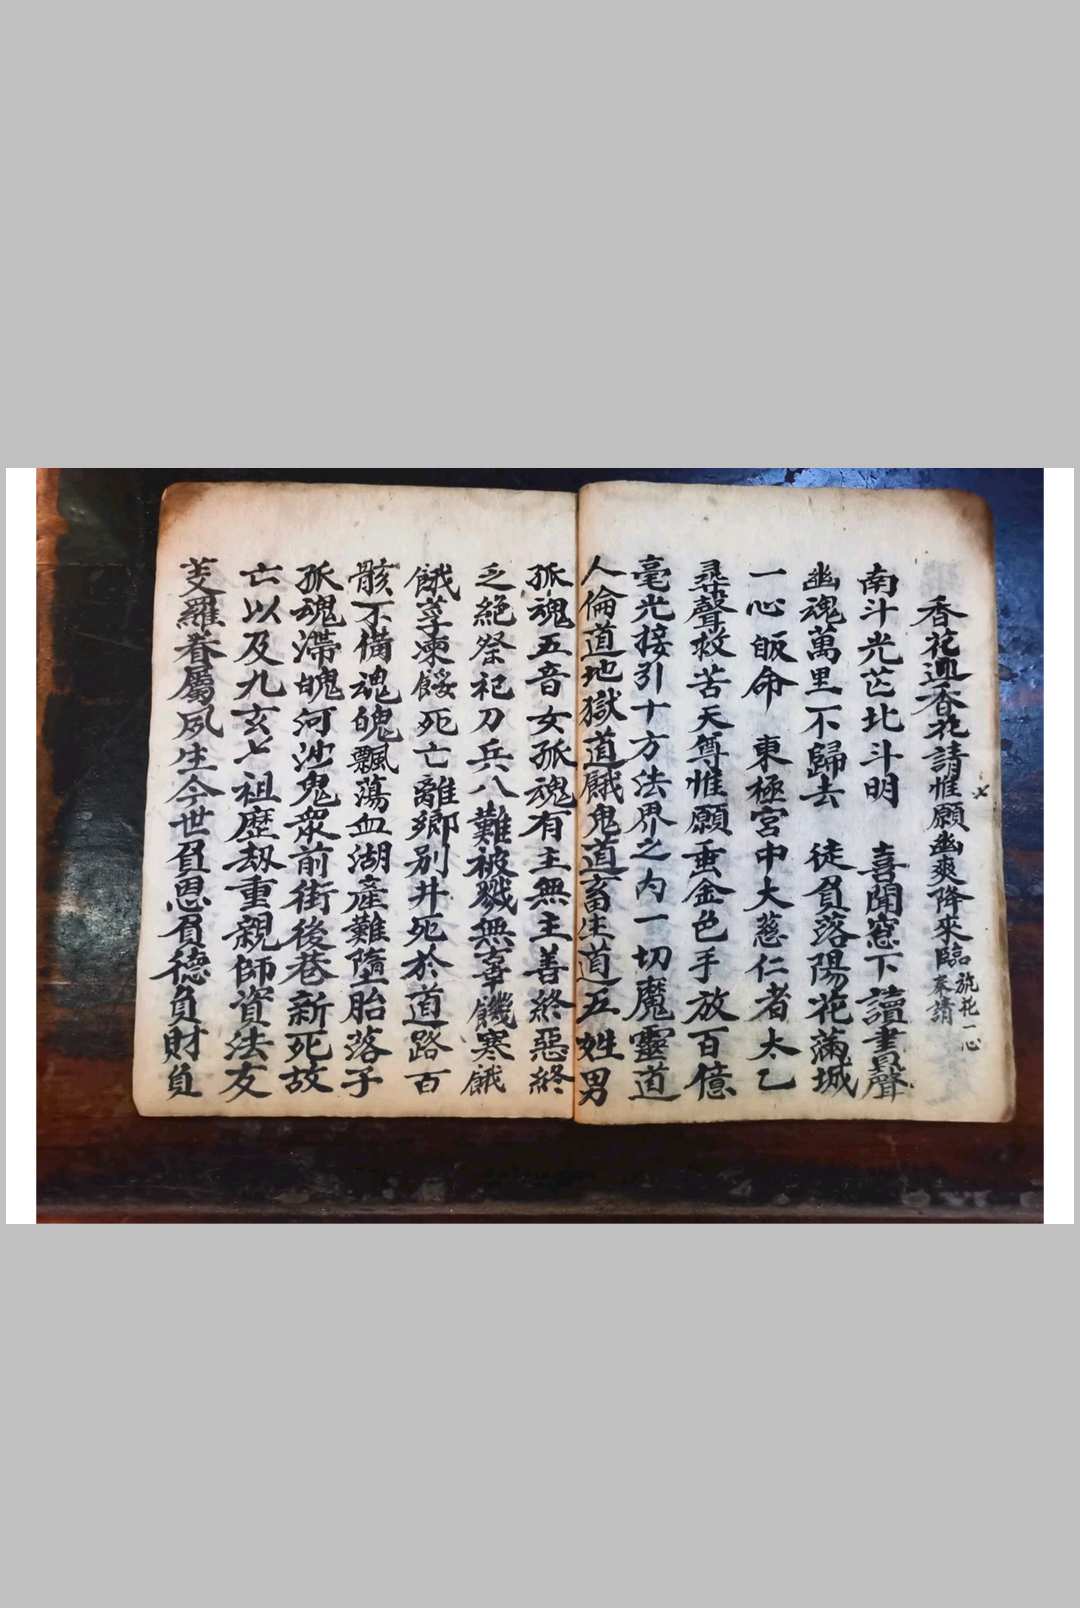 香花迎香花請惟願幽爽降來臨 旋花一心奉請
南斗光芒北斗明 喜聞窓下讀書聲
幽魂萬里不歸去 徒負落陽花滿城
一心皈命 東極宮中大慈仁者太乙
尋聲救苦天尊惟願垂金色手放百億
毫光接引十方法界之内一切魔靈道
人倫道地獄道餓鬼道畜生道五姓男
孤魂五音女孤魂有主無主善終惡終
乏絶祭祀刀兵八難被戮無辜饑寒餓
餓莩凍餒死亡離鄉別井死於道路百
骸不備魂魄飄蕩血湖產難墮胎落子
孤魂滯魄河沙鬼衆前街後巷新死故
亡以及九玄七祖歷劫重親師資法友
羅眷屬夙生今世負恩負德負財負